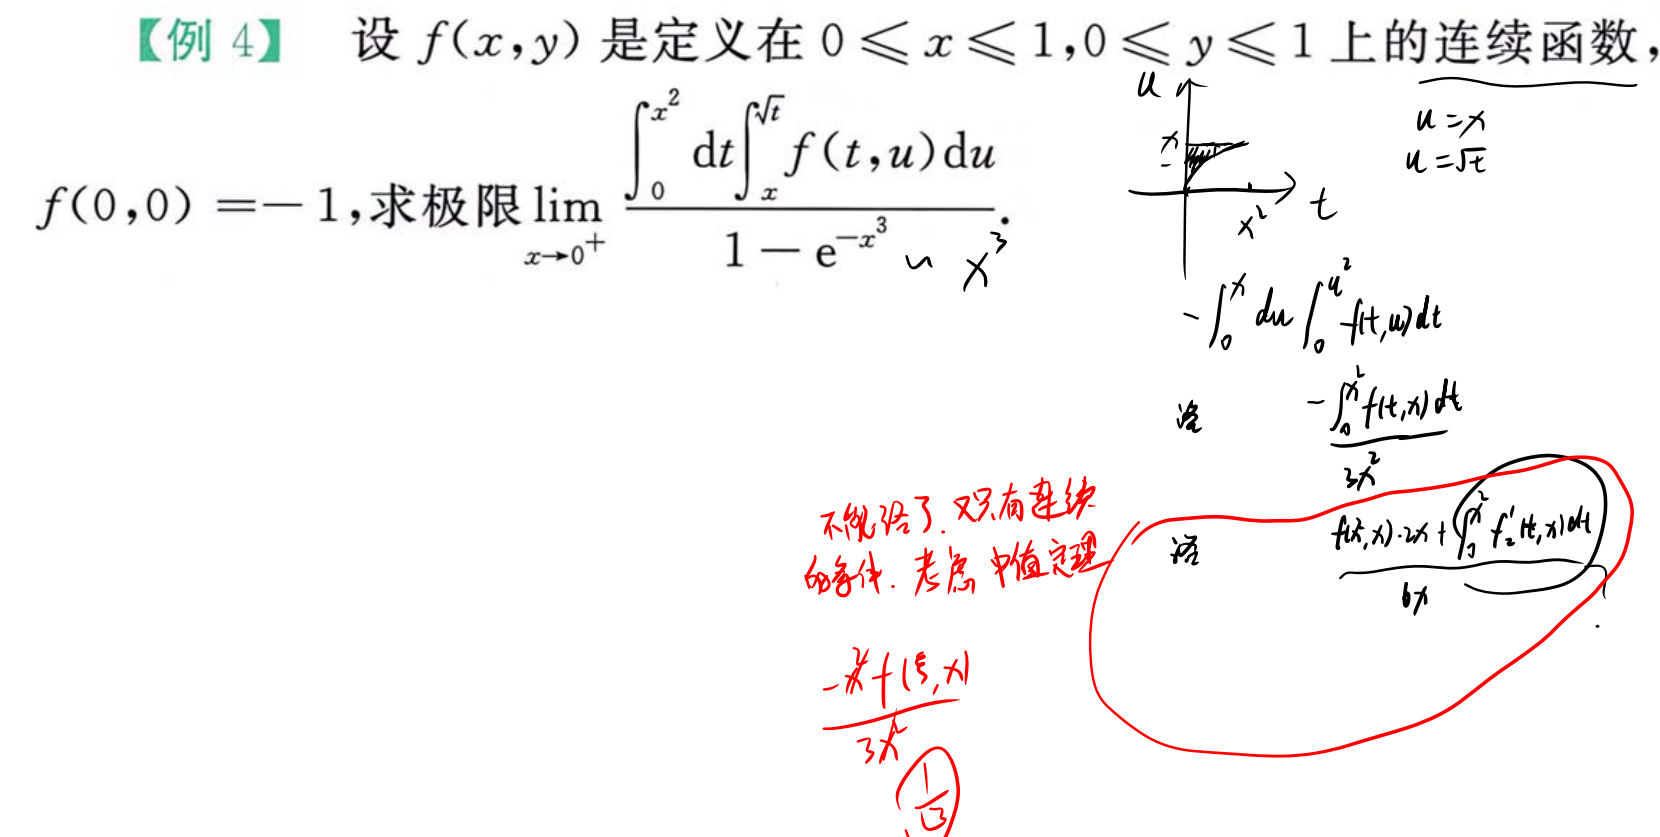 【例 4】 设 f(x,y) 是定义在 0 ≤ x ≤ 1,0 ≤ y ≤ 1 上的连续函数,
f(0,0) =− 1,求极限 lim_{x→0⁺} \frac{∫_0^{x²} dt∫_x^{√t} f(t,u)du}{1 − e^{−x³}}.
∽ x³
u
x
x²
t
u = x
u = √t
−∫_0^x du ∫_0^{u²} f(t,u)dt
洛 \frac{−∫_0^{x²} f(t,x)dt}{3x²}
洛 \frac{f(x²,x)·2x + ∫_0^{x²} f₂'(t,x)dt}{6x}
不能洛了. 又只有连续
的条件. 考虑 中值定理
\frac{−x² f(ξ,x)}{3x²}
\frac{1}{3}